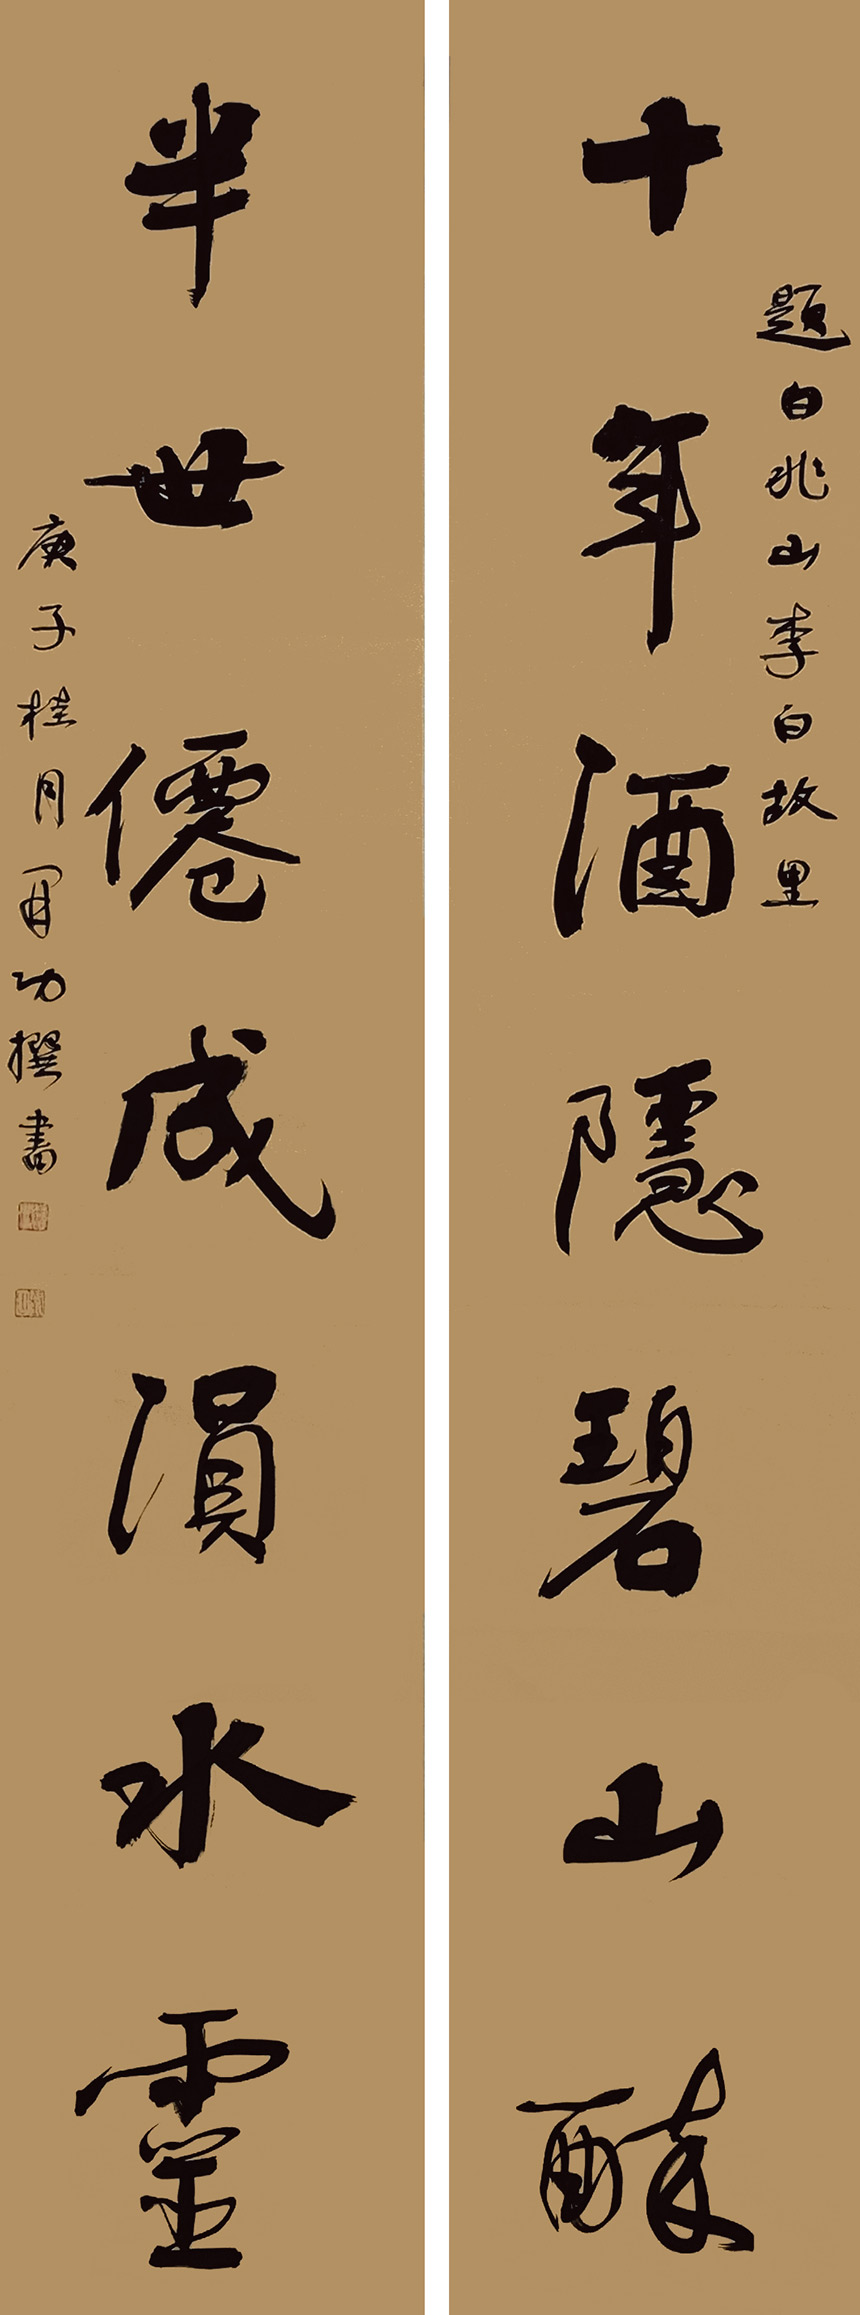 題白兆山李白故里
十年酒隱碧山醉
半世僊成涢水靈
庚子桂月軍功撰書